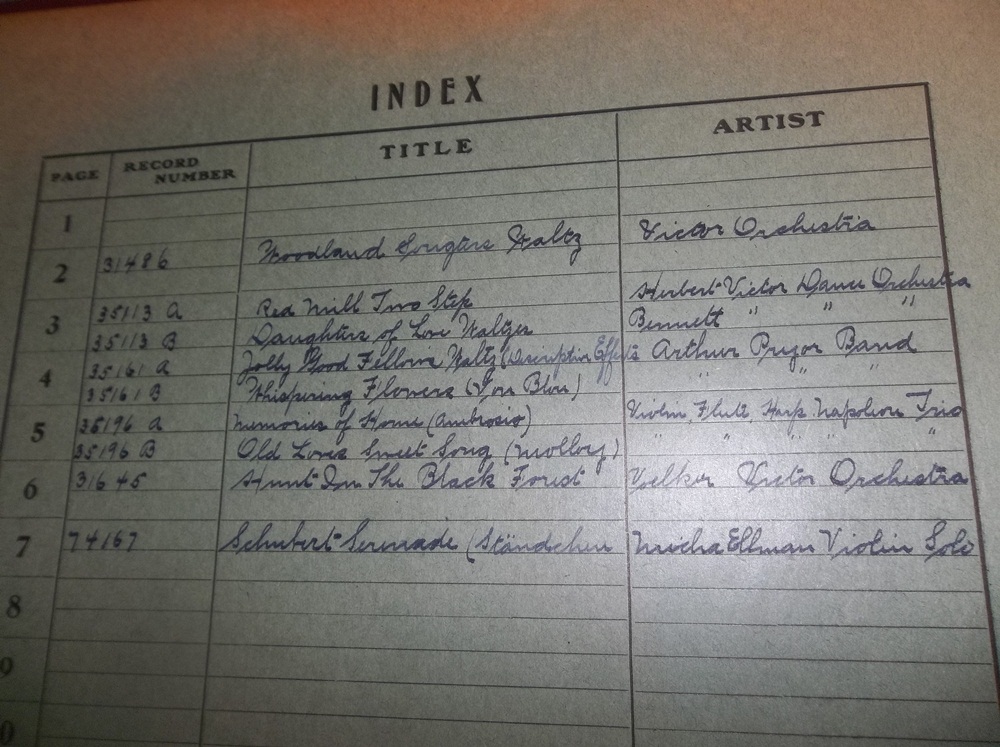 INDEX
PAGE RECORD NUMBER TITLE ARTIST
1
2 31486 Woodland Songsters Waltz Victor Orchestra
3 35113 A Red Mill Two Step Herbert Victor Dance Orchestra
35113 B Daughters of Love Waltzes Bennett " "
4 35161 A Jolly Good Fellows Waltz (Descriptive Effects Arthur Pryor Band
35161 B Whispering Flowers (Von Blon) " " "
5 35196 A Memories of Home (Ambrosio) Violin, Flute, Harp Napoleon Trio
35196 B Old Loves Sweet Song (Molloy) " " " " "
6 31645 Hunt In The Black Forest Voelker Victor Orchestra
7 74167 Schubert Serenade (Ständchen Mischa Ellman Violin Solo
8
9
0